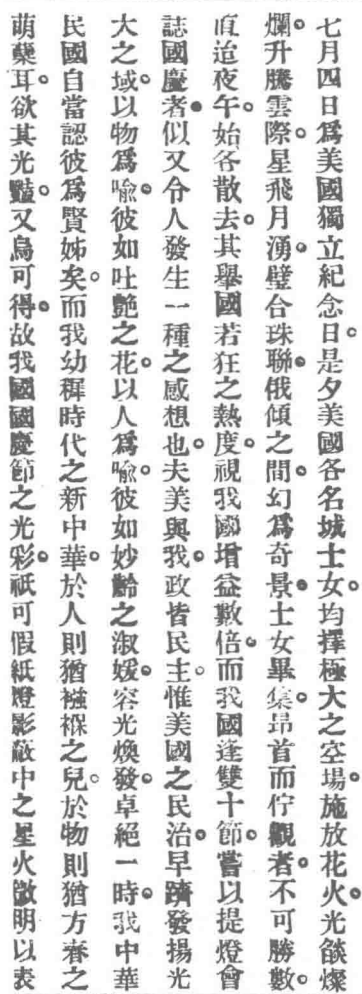 七月四日爲美國獨立紀念日。是夕美國各名城士女。均擇極大之空場。施放花火。光燄燦
爛。升騰雲際。星飛月湧。璧合珠聯。俄傾之間。幻爲奇景。士女畢集。昂首而佇觀者。不可勝數。
直迨夜午。始各散去。其舉國若狂之熱度。視我國增益數倍。而我國逢雙十節。嘗以提燈會
誌國慶者。似又令人發生一種之感想也。夫美與我。政皆民主。惟美國之民治。早躋發揚光
大之域。以物爲喻。彼如吐艷之花。以人爲喻。彼如妙齡之淑媛。容光煥發。卓絕一時。我中華
民國自當認彼爲賢姊矣。而我幼穉時代之新中華。於人則猶襁褓之兒。於物則猶方春之
萌蘖耳。欲其光豔。又烏可得。故我國國慶節之光彩。祇可假紙燈影蔽中之星火微明以表